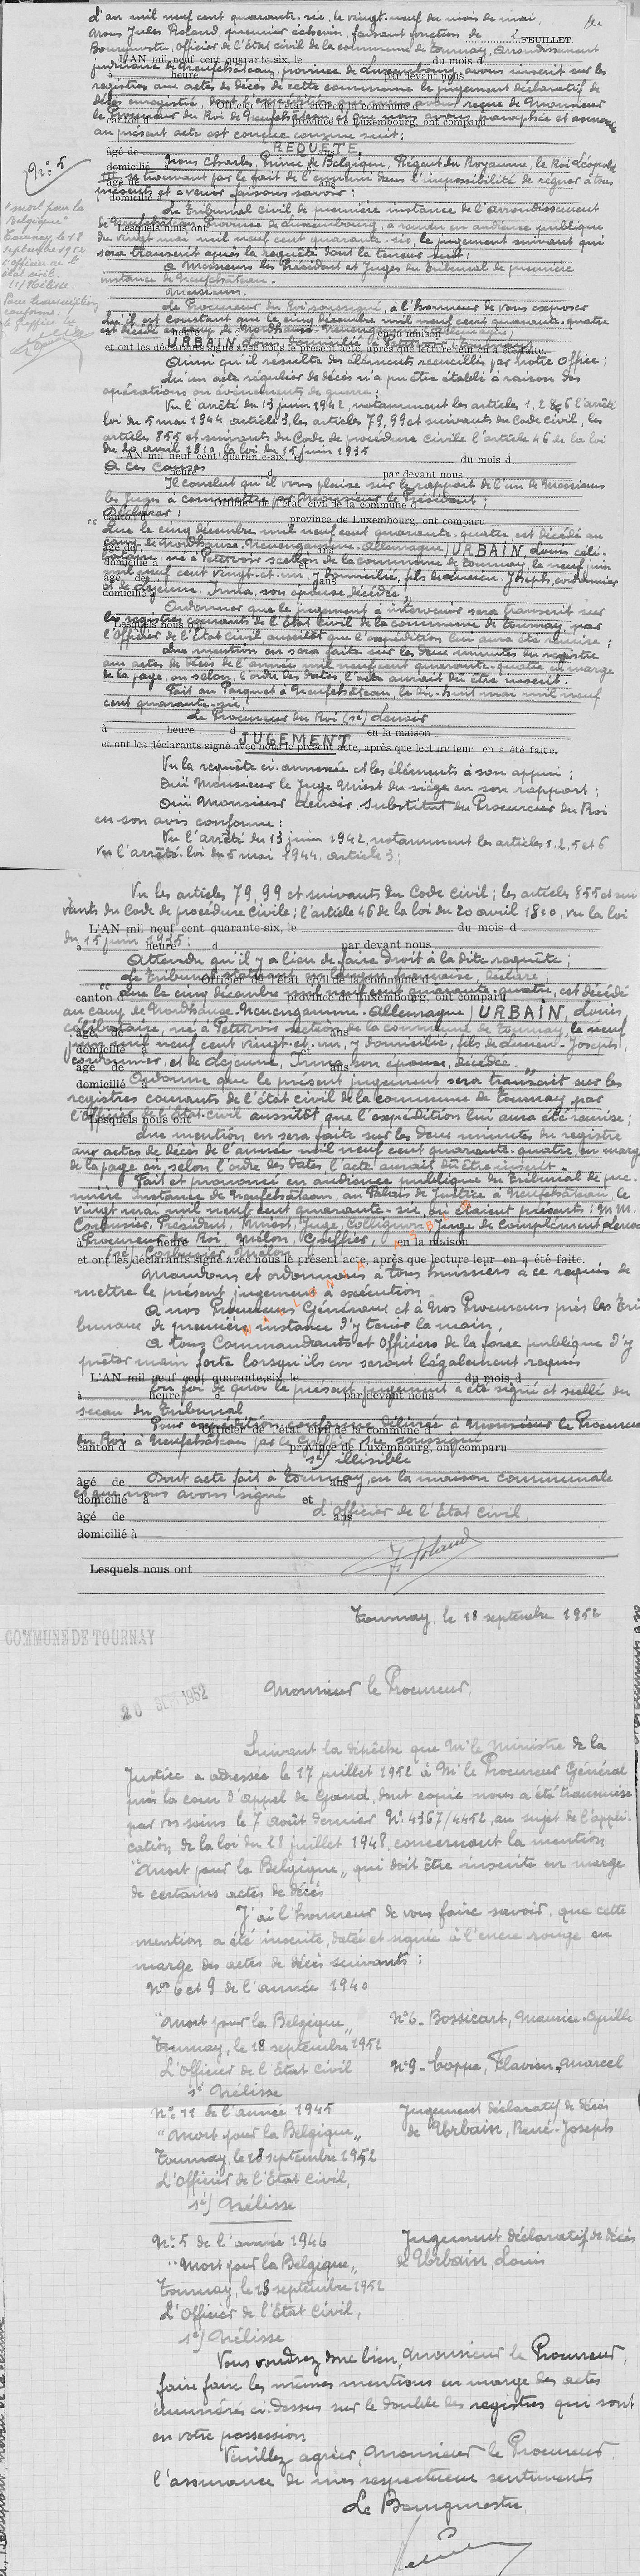 L'an mil neuf cent quarante-six, le vingt-neuf du mois de mai,
Nous Jules Roland, premier échevin, faisant fonction de 2 FEUILLET.
Bourgmestre, Officier de l'Etat civil de la commune de Tournay, arrondissement
L'AN mil neuf cent quarante-six, le du mois d
judiciaire de Neufchâteau, province de Luxembourg, avons inscrit sur les
à heure d par devant nous
registres aux actes de décès de cette commune le jugement déclaratif de
décès enregistré, dont expédition nous avons reçue de Monsieur
Officier de l'état civil de la commune d
le Procureur du Roi de Neufchâteau et que nous avons paraphée et annexée
canton d province de Luxembourg, ont comparu
au présent acte est conçue comme suit :
REQUÊTE.
âgé de ans
N° 5
Nous Charles, Prince de Belgique, Régent du Royaume, le Roi Léopold
domicilié à et
III se trouvant par le fait de l'ennemi dans l'impossibilité de régner à tous
âgé de ans
présents et à venir faisons savoir :
domicilié à
"mort pour la
Belgique"
Tournay, le 18
septembre 1952
L'Officier de l'
état civil.
s/ Mélisse.
Pour transcription
conforme,
le Greffier
Le Tribunal civil de première instance de l'arrondissement
de Neufchâteau Province de Luxembourg, a rendu en audience publique
Lesquels nous ont
du vingt mai mil neuf cent quarante-six, le jugement suivant qui
sera transcrit après la requête dont la teneur suit :
A Messieurs les Président et Juges du Tribunal de première
instance de Neufchâteau.
Messieurs,
Le Procureur du Roi soussigné, à l'honneur de vous exposer
Qu'il est constant que le cinq décembre mil neuf cent quarante-quatre
est décédé au camp de Nordhause-Neuengamme-Allemagne,
à heure en la maison
URBAIN, Louis domicilié de Petitvoir (Tournay)
et ont les déclarants signé avec nous le présent acte, après que lecture leur en a été faite.
Ainsi qu'il résulte des éléments recueillis par notre office ;
Qu'un acte régulier de décès n'a pu être établi à raison des
opérations ou événements de guerre ;
Vu l'arrêté du 13 juin 1942, notamment les articles 1, 2 & 6 l'arrêté
loi du 5 mai 1944, article 3, les articles 79, 99 et suivants du Code civil, les
articles 855 et suivants du Code de procédure civile l'article 46 de la loi
du 20 avril 1810, la loi du 15 juin 1935
L'AN mil neuf cent quarante-six, le du mois d
A ces causes
à heure d par devant nous
Il conclut qu'il vous plaise sur le rapport de l'un de Messieurs
les Juges à commettre par Monsieur le Président ;
Officier de l'état civil de la commune d
Déclarer :
canton d province de Luxembourg, ont comparu
"Que le cinq décembre mil neuf cent quarante-quatre, est décédé au
camp de Nordhause-Neuengamme-Allemagne) URBAIN, Louis, céli-
âgé de ans
bataire, né à Petitvoir section de la commune de Tournay, le neuf juin
domicilié à et
mil neuf cent vingt-et-un, y domicilié, fils de Lucien-Joseph, cordonnier
âgé de ans
et de Lejeune, Irma, son épouse décédée"
domicilié à
Ordonner que le jugement à intervenir sera transcrit sur
les registres courants de l'Etat Civil de la commune de Tournay, par
Lesquels nous ont
l'Officier de l'Etat Civil, aussitôt que l'expédition lui aura été remise ;
Que mention en sera faite sur les deux minutes du registre
aux actes de décès de l'année mil neuf cent quarante-quatre, en marge
de la page, où selon, l'ordre des dates l'acte aurait dû être inscrit.
Fait au Parquet à Neufchâteau, le dix-huit mai mil neuf
cent quarante-six,
Le Procureur du Roi (sé) Lenoir
à heure d en la maison
JUGEMENT
et ont les déclarants signé avec nous le présent acte, après que lecture leur en a été faite.
Vu la requête ci-annexée et les éléments à son appui ;
Ouï Monsieur le Juge Miest du siège en son rapport ;
Ouï Monsieur Lenoir, substitut du Procureur du Roi
en son avis conforme :
Vu l'arrêté du 13 juin 1942, notamment les articles 1, 2, 5 et 6
Vu l'arrêté-loi du 5 mai 1944, article 3 ;
Vu les articles 79, 99 et suivants du Code Civil ; les articles 855 et sui
vants du Code de procédure Civile ; l'article 46 de la loi du 20 avril 1810, vu la loi
L'AN mil neuf cent quarante-six, le du mois d
du 15 juin 1935 ;
à heure d par devant nous
Attendu qu'il y a lieu de faire droit à la dite requête ;
Le Tribunal statuant en langue française, déclare ;
Officier de l'état civil de la commune d
"Que le cinq décembre mil neuf cent quarante-quatre, est décédé
canton d province de Luxembourg, ont comparu
au camp de Nordhause-Neuengamme-Allemagne) URBAIN, Louis,
célibataire, né à Petitvoir section de la commune de Tournay le neuf
âgé de ans
juin mil neuf cent vingt-et-un, y domicilié, fils de Lucien-Joseph,
domicilié à et
cordonnier, et de Lejeune, Irma son épouse, décédée"
âgé de ans
domicilié à
Ordonne que le présent jugement sera transcrit sur les
registres courants de l'état civil de la commune de Tournay par
l'Officier de l'Etat Civil aussitôt que l'expédition lui aura été remise ;
Lesquels nous ont
Que mention en sera faite sur les deux minutes du registre
aux actes de décès de l'année mil neuf cent quarante-quatre, en marge
de la page où, selon l'ordre des dates, l'acte aurait dû être inscrit.
Fait et prononcé en audience publique du tribunal de pre-
mière Instance de Neufchâteau, au Palais de Justice à Neufchâteau, le
vingt mai mil neuf cent quarante-six, où étaient présents : M.M.
Cornusier, Président, Miest, Juge, Collignon, Juge de complément Lenoir
Procureur du Roi, Melon, Greffier,
à heure en la maison
(sé) Cornusier, Melon
et ont les déclarants signé avec nous le présent acte, après que lecture leur en a été faite.
Mandons et ordonnons à tous huissiers à ce requis de
mettre le présent jugement à exécution
A nos Procureurs Généraux et à Nos Procureurs près les Tri
bunaux de première instance d'y tenir la main,
A tous Commandants et Officiers de la force publique d'y
prêter main forte lorsqu'ils en seront légalement requis
L'AN mil neuf cent quarante-six, le du mois d
En foi de quoi le présent jugement a été signé et scellé du
à heure d par devant nous
sceau du Tribunal
Pour expédition conforme délivrée à Monsieur le Procureur
Officier de l'état civil de la commune d
du Roi à Neufchâteau par le Greffier sé soussigné
canton d province de Luxembourg, ont comparu
(sé) illisible
âgé de ans
Dont acte fait à Tournay, en la maison communale
et que nous avons signé
domicilié à et
L'Officier de l'Etat Civil,
âgé de ans
domicilié à
J. Roland
Lesquels nous ont
Tournay, le 18 septembre 1952
COMMUNE DE TOURNAY
20 SEPT 1952
Monsieur le Procureur,
Suivant la dépêche que Mr le Ministre de la
Justice a adressée le 17 juillet 1952 à Mr le Procureur Général
près la cour d'appel de Gand, dont copie nous a été transmise
par vos soins le 7 août dernier N° 4367/4452, au sujet de l'appli-
cation de la loi du 28 juillet 1948, concernant la mention
"Mort pour la Belgique" qui doit être inscrite en marge
de certains actes de décès
J'ai l'honneur de vous faire savoir, que cette
mention a été inscrite, datée et signée à l'encre rouge en
marge des actes de décès suivants :
Nos 6 et 9 de l'année 1940
"Mort pour la Belgique" N° 6 - Bossicart, Maurice-Cyrille
Tournay, le 18 septembre 1952
L'Officier de l'Etat Civil N° 9 - Coppe, Flavien-Marcel
sé Mélisse
N° 11 de l'année 1945 Jugement déclaratif de décès
"Mort pour la Belgique" de Urbain, René-Joseph
Tournay, le 18 septembre 1952
L'Officier de l'Etat Civil,
sé) Mélisse
N° 5 de l'année 1946 Jugement déclaratif de décès
"Mort pour la Belgique" de Urbain, Louis
Tournay, le 18 septembre 1952
L'Officier de l'Etat Civil,
sé) Mélisse
Vous voudrez donc bien, Monsieur le Procureur,
faire faire les mêmes mentions en marge des actes
énumérés ci-dessus sur le double des registres qui sont
en votre possession
Veuillez agréer, Monsieur le Procureur,
l'assurance de mes respectueux sentiments
Le Bourgmestre,